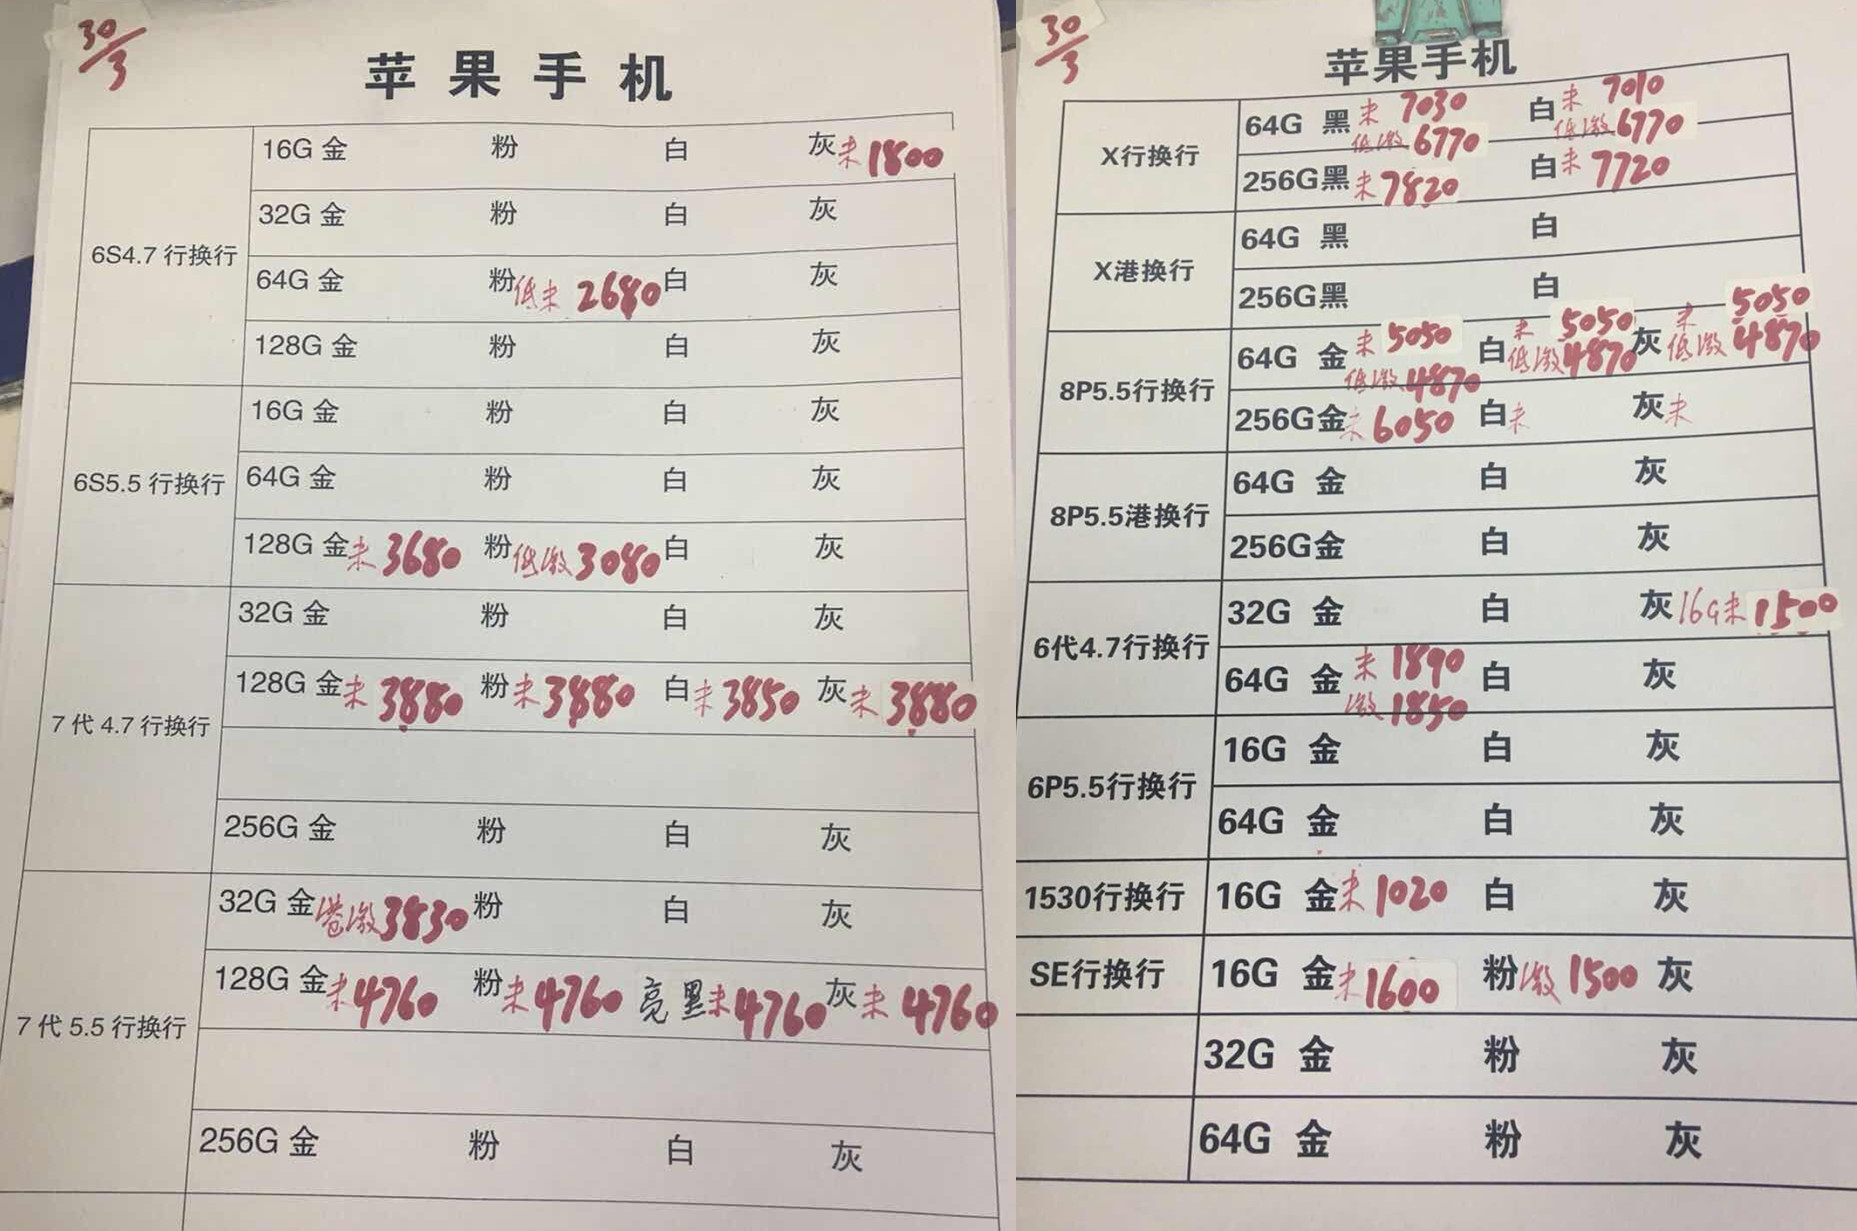 30/3
苹果手机
6S4.7 行换行
16G 金 粉 白 灰 未 1800
32G 金 粉 白 灰
64G 金 粉 低未 2680 白 灰
128G 金 粉 白 灰
6S5.5 行换行
16G 金 粉 白 灰
64G 金 粉 白 灰
128G 金 未 3680 粉 低激 3080 白 灰
7 代 4.7 行换行
32G 金 粉 白 灰
128G 金 未 3880 粉 未 3880 白 未 3850 灰 未 3880
256G 金 粉 白 灰
7 代 5.5 行换行
32G 金 港激 3830 粉 白 灰
128G 金 未 4760 粉 未 4760 亮黑 未 4760 灰 未 4760
256G 金 粉 白 灰
30/3
苹果手机
X行换行
64G 黑 未 7030 白 未 7010
低激 6770 低激 6770
256G黑 未 7820 白 未 7720
X港换行
64G 黑 白
256G黑 白
8P5.5行换行
64G 金 未 5050 白 未 5050 灰 未 5050
低激 4870 低激 4870 低激 4870
256G金 未 6050 白 未 灰 未
8P5.5港换行
64G 金 白 灰
256G金 白 灰
6代4.7行换行
32G 金 白 灰 16G未 1500
64G 金 未 1890 白 灰
激 1850
6P5.5行换行
16G 金 白 灰
64G 金 白 灰
1530行换行
16G 金 未 1020 白 灰
SE行换行
16G 金 未 1600 粉 激 1500 灰
32G 金 粉 灰
64G 金 粉 灰